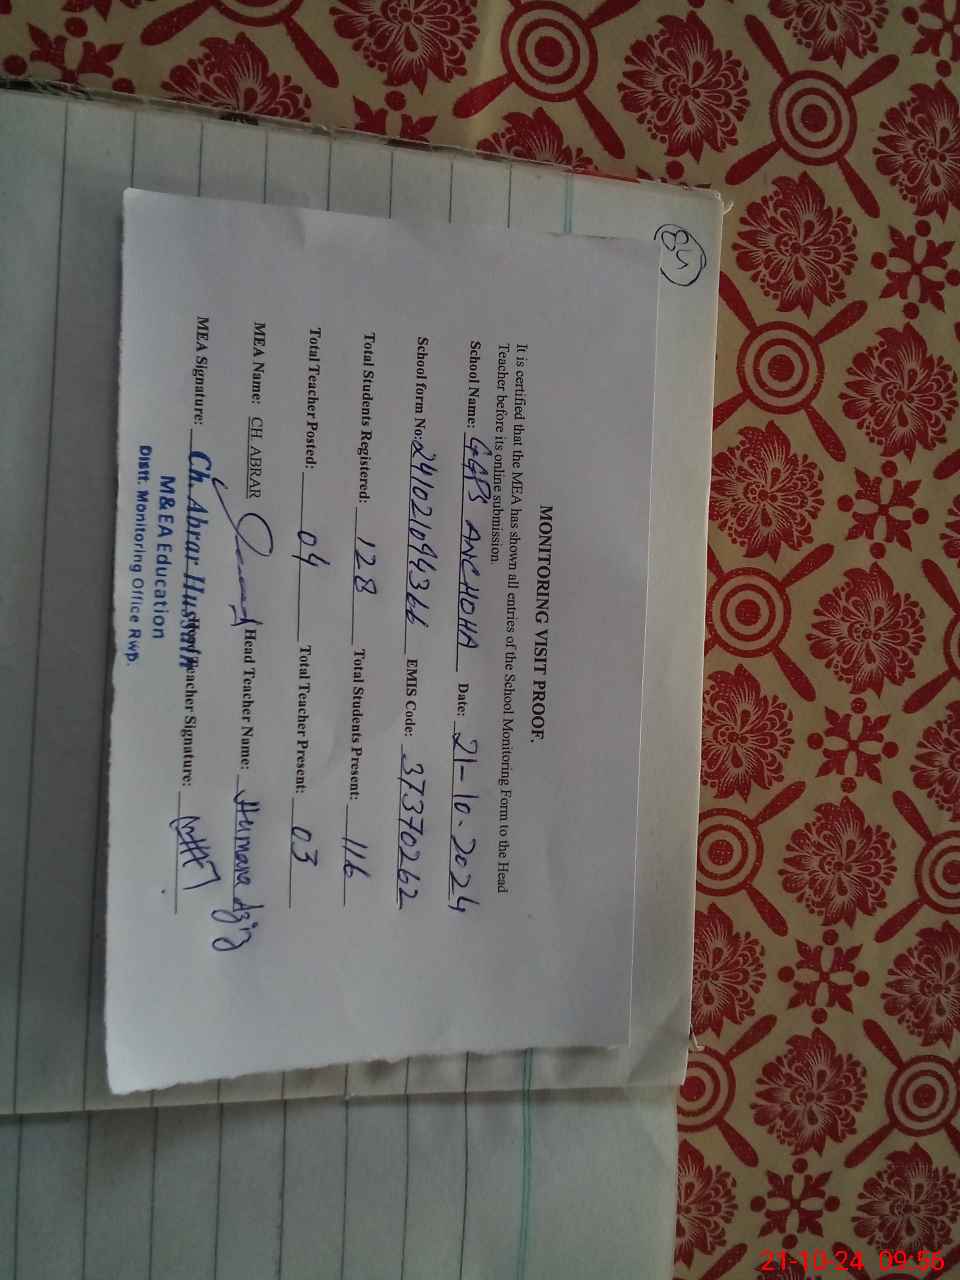 84
MONITORING VISIT PROOF.
It is certified that the MEA has shown all entries of the School Monitoring Form to the Head
Teacher before its online submission
School Name: GGPS ANCHOHA Date: 21-10-2024
School form No: 24102109436 EMIS Code: 37370262
Total Students Registered: 128 Total Students Present: 116
Total Teacher Posted: 04 Total Teacher Present: 03
MEA Name: CH. ABRAR Head Teacher Name: Humera Aziz
MEA Signature: Teacher Signature:
Ch. Abrar Hussain
M&EA Education
Distt. Monitoring Office Rwp.
21-10-24 09:56